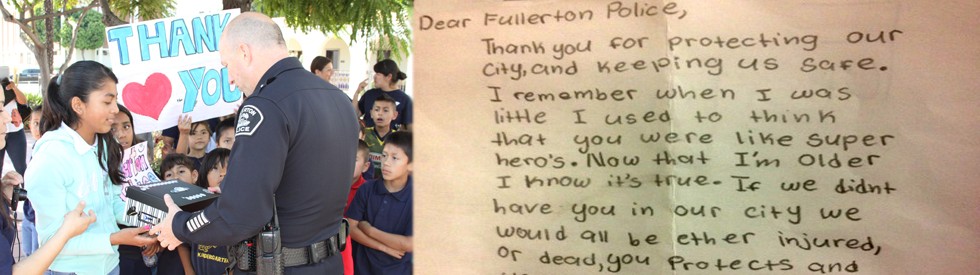 THANK
YOU
POLICE
Dear Fullerton Police,
Thank you for protecting our
city, and keeping us safe.
I remember when I was
little I used to think
that you were like super
hero's. Now that I'm older
I know it's true. If we didnt
have you in our city we
would all be ether injured,
or dead, you protects and